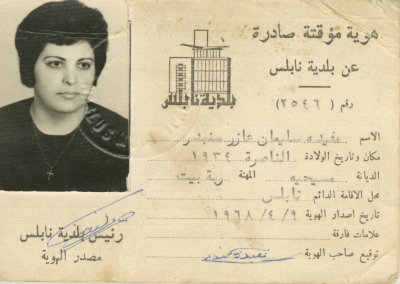 هوية مؤقتة صادرة
عن بلدية نابلس
بلدية نابلس
رقم ( ٢٥٤٦ )
الاسم مفيده سليمان عازر
مكان وتاريخ الولادة الناصرة ١٩٣٤
الديانة مسيحيه المهنة ربة بيت
محل الاقامة الدائم نابلس
تاريخ اصدار الهوية ٩ / ٤ / ١٩٦٨
علامات فارقة
توقيع صاحب الهوية
رئيس بلدية نابلس
مصدر الهوية